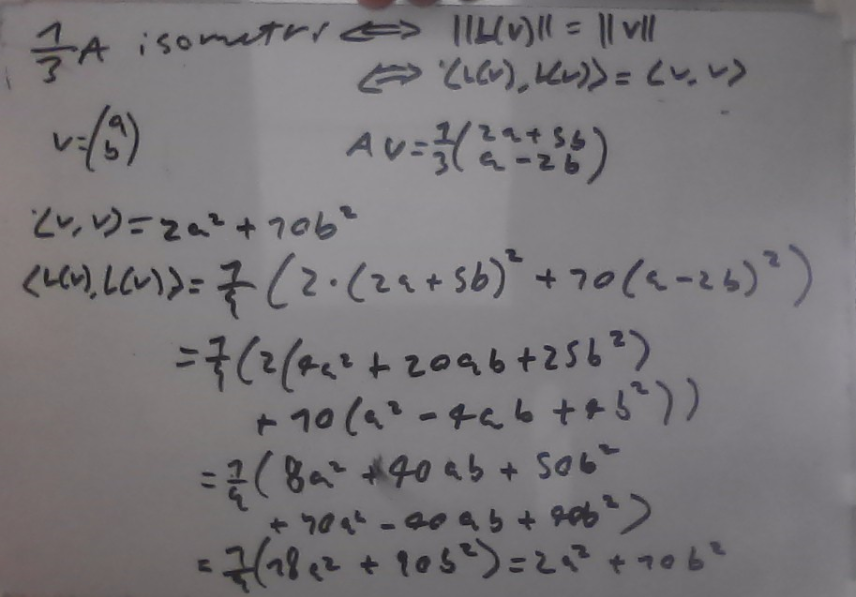 1/3 A isometry ⟺ ||L(v)|| = ||v||
⟺ ⟨L(v), L(v)⟩ = ⟨v, v⟩
v = (a b)   Av = 1/3 (2a + 5b a - 2b)
⟨v, v⟩ = 2a² + 10b²
⟨L(v), L(v)⟩ = 1/9 (2·(2a + 5b)² + 10(a - 2b)²)
= 1/9 (2(4a² + 20ab + 25b²)
+ 10(a² - 4ab + 4b²))
= 1/9 (8a² + 40ab + 50b²
+ 10a² - 40ab + 40b²)
= 1/9 (18a² + 90b²) = 2a² + 10b²